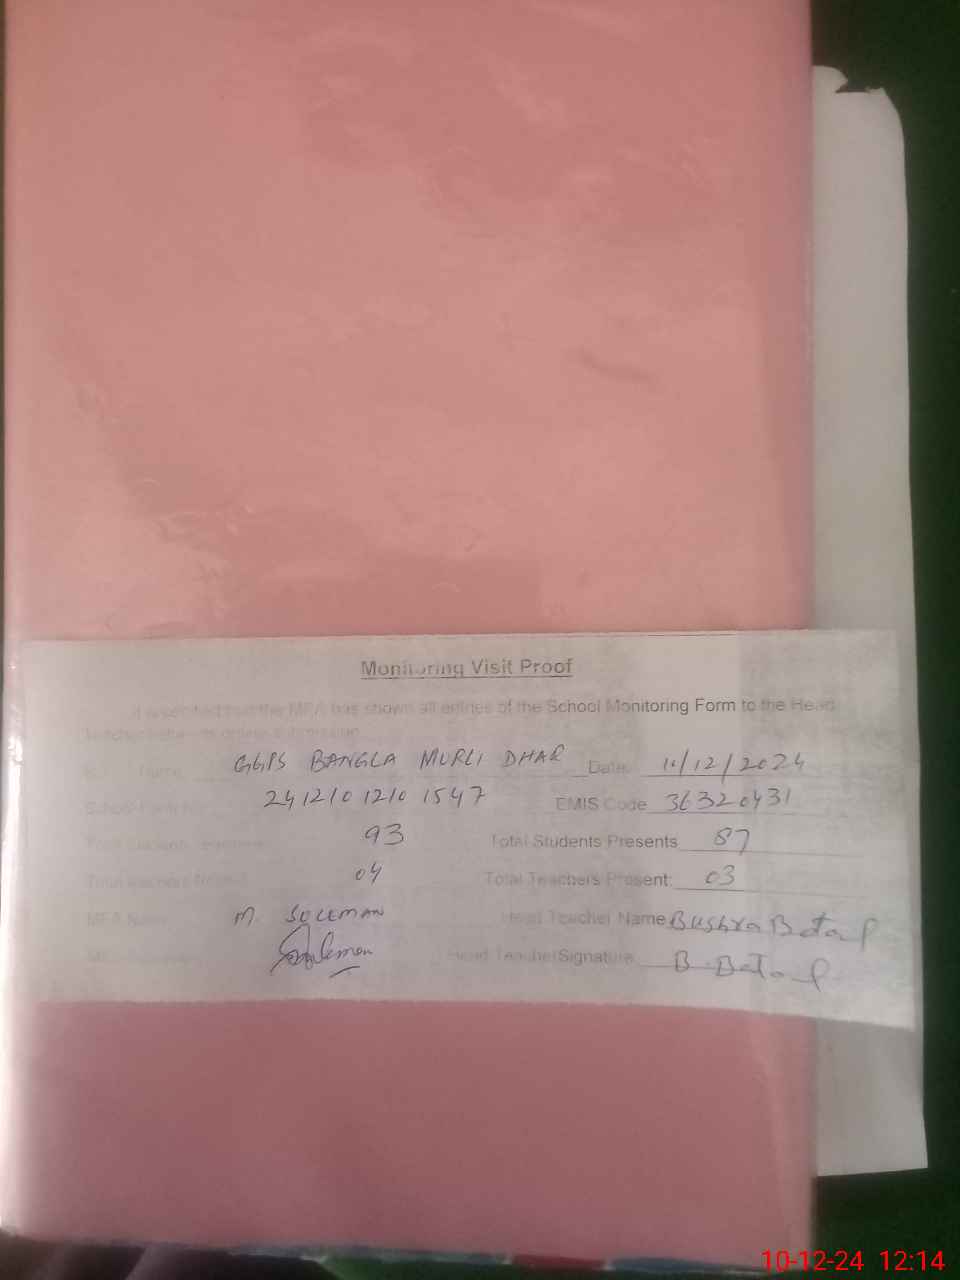 Monitoring Visit Proof
It is certified that the MEA has shown all entries of the School Monitoring Form to the Head
Teacher before its online submission
Name GGPS BANGLA MURLI DHAR Date: 10/12/2024
School 24121012101547 EMIS Code 36320431
Total Students 93 Total Students Presents 87
Total Teachers 04 Total Teachers Present: 03
MEA Name M. SULEMAN Head Teacher Name Bushra Batool
MEA Head Teacher Signature B. Batool
10-12-24 12:14